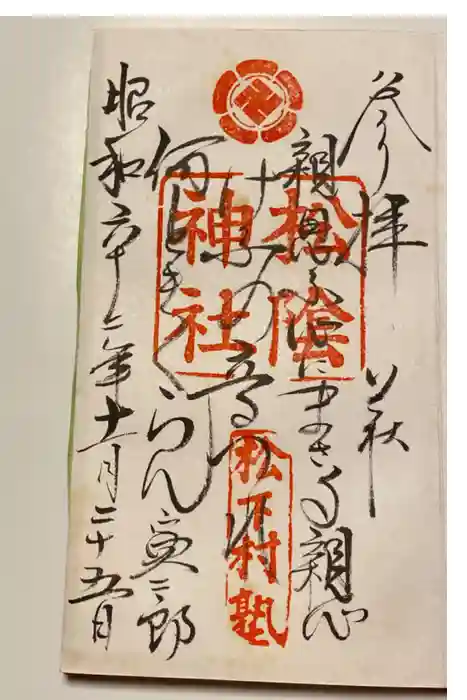 参拝 公萩
親思ふ心にまさる親心
けふの音づれ
何ときくらん 寅二郎
昭和六十二年十一月二十五日
松陰
神社
松下村塾